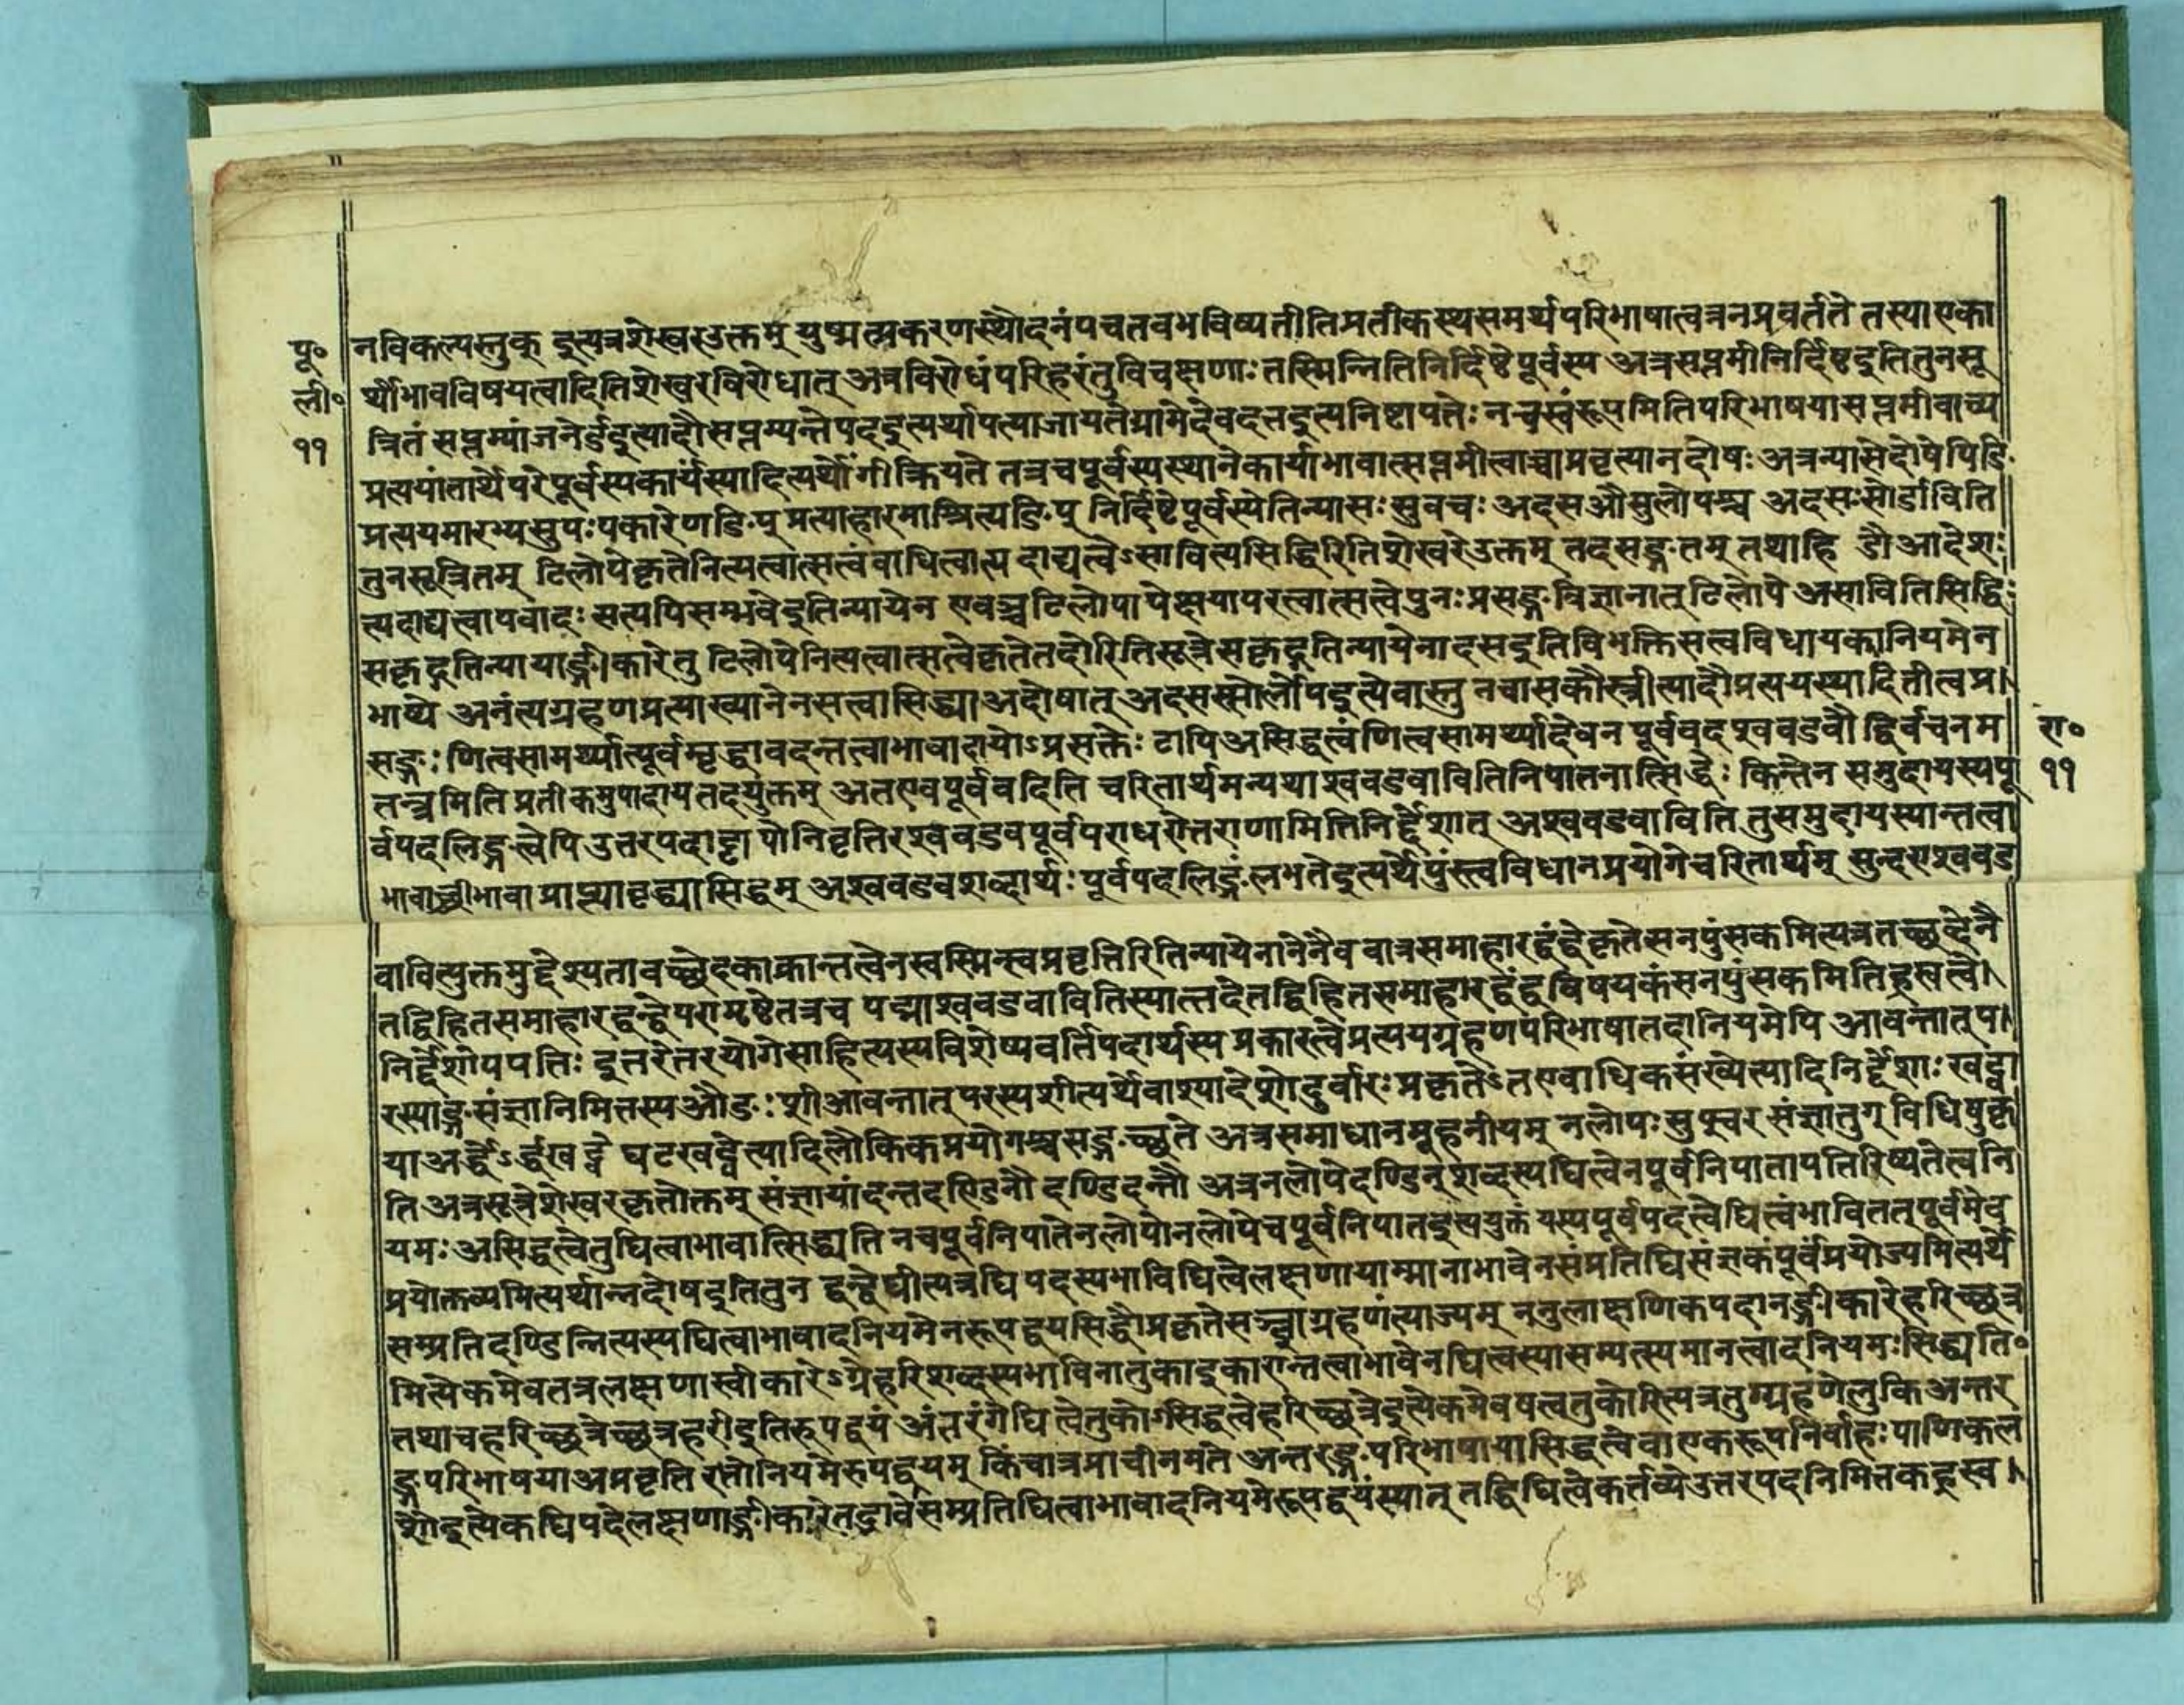 पू॰
ली॰
११
नविकल्पस्तुक् इत्यत्रशेखरउक्तम् युष्मत्प्रकरणस्थौदनंपचतवभविष्यतीतिप्रतीकस्यसमर्थपरिभाषात्वत्रनप्रवर्तते तस्याएका
र्थीभावविषयत्वादितिशेखरविरोधात् अत्रविरोधंपरिहरंतुविचक्षणाः तस्मिन्नितिनिर्दिष्टेपूर्वस्य अत्रसप्तमीनिर्दिष्टइतितुनसू
त्रितं सप्तम्यांजनेर्डइत्यादौसप्तम्यन्तेपदइत्यर्थापत्त्याजायतेग्रामेदेवदत्तइत्यनिष्टापत्तेः नचस्वंरूपमितिपरिभाषयासप्तमीवाच्य
प्रत्ययांतार्थेपरेपूर्वस्यकार्यंस्यादित्यर्थोंगीक्रियते तत्रचपूर्वस्यस्थानेकार्याभावात्सप्तमीत्वाच्चाप्रवृत्त्यानदोषः अत्रन्यासेदोषेपिङि
प्रत्ययमारभ्यसुपःपकारेणङिपु प्रत्याहारमाश्रित्यङिपु निर्दिष्टेपूर्वस्येतिन्यासःसुवचः अदसऔसुलोपश्च अदसःसोर्डाविति
तुनसूत्रितम् टिलोपेकृतेनित्यत्वात्सत्वंबाधित्वात्यदाद्यत्वेऽसावित्यसिद्धिरितिशेखरेउक्तम् तदसङ्गतम् तथाहि डौआदेशः
त्यदाद्यत्वापवादः सत्यपिसम्भवेइतिन्यायेन एवञ्चटिलोपापेक्षयापरत्वात्सत्वेपुनःप्रसङ्गविज्ञानात् टिलोपे असावितिसिद्धिः
सकृद्गतिन्यायाङ्गीकारेतु टिलोपेनित्यत्वात्सत्वेकृतेतदोरितिसूत्रेसकृद्गतिन्यायेनादसइतिविभक्तिसत्वविधायकानियमेन
भाष्ये अनंत्यग्रहणप्रत्याख्यानेनसत्वासिद्ध्याअदोषात् अदसस्सोर्लोपइत्येवास्तु नचासकौस्त्रीत्यादौप्रत्ययस्यादितीत्वप्र।
सङ्गः णित्वसामर्थ्यात्पूर्वम्वृद्धावदन्तत्वाभावादायोऽप्रसक्तेः टापिअसिद्धत्वंणित्वसामर्थ्यादेवन पूर्ववदश्ववडवौ द्विर्वचनम
तन्त्रमिति प्रतीकमुपादाय तदयुक्तम् अतएवपूर्ववदिति चरितार्थमन्यथाश्ववडवावितिनिपातनात्सिद्धेः किन्तेन समुदायस्यपू
र्वपदलिङ्गत्वेपिउत्तरपदाट्टापोनिवृत्तिरश्ववडवपूर्वपराधरोत्तराणामितिनिर्द्देशात् अश्ववडवाविति तुसमुदायस्यान्तत्वा
भावाच्छीभावाप्राप्त्यावृद्ध्यासिद्धम् अश्ववडवशब्दार्थः पूर्वपदलिङ्गंलभतेइत्यर्थेपुंस्त्वविधानप्रयोगेचरितार्थम् सुन्दराश्ववड
रा॰
११
वावित्युक्तमुद्देश्यतावच्छेदकाक्रान्तत्वेनस्वस्मिन्स्वप्रवृत्तिरितिन्यायेनानेनैव वात्रसमाहारद्वंद्वेकृतेसनपुंसकमित्यत्रतच्छब्देनै
तद्विहितसमाहारद्वन्द्वेपरामृष्टेतत्रच पद्माश्ववडवावितिस्यात्तदेतद्विहितसमाहारद्वंद्वविषयकंसनपुंसकमितिह्रस्वत्वे।
निर्द्देशोपपत्तिः इतरेतरयोगेसाहित्यस्यविशेष्यवर्तिपदार्थस्य प्रकारत्वेप्रत्ययग्रहणपरिभाषातदानियमेपि आवन्तात्प।
रस्याङ्गसंज्ञानिमित्तस्यऔङः शीआवन्तात्परस्यशीत्यर्थेवाश्यादेशोदुर्वारः प्रकृतेऽतएवाधिकसंख्येत्यादिनिर्द्देशाः खट्वा
याअर्द्धेऽर्द्धखट्वं घटखट्वेत्यादिलौकिकप्रयोगश्चसङ्गच्छते अत्रसमाधानमूहनीयम् नलोपःसुप्स्वरसंज्ञातुग्विधिषुकृ
ति अत्रसूत्रेशेखरकृतोक्तम् संज्ञायांदन्तदण्डिनौ दण्डिदन्तौ अत्रनलोपेदण्डिन्शब्दस्यघित्वेनपूर्वनिपातापत्तिरिष्यतेत्वनि
यमः असिद्धत्वेतुघित्वाभावात्सिद्ध्यति नचपूर्वनिपातेनलोपोनलोपेचपूर्वनिपातइत्ययुक्तं यस्यपूर्वपदत्वेघित्वंभावितत्पूर्वमेव
प्रयोक्तव्यमित्यर्थान्नदोषइतितुन द्वन्द्वेघीत्यत्रघिपदस्यभाविघित्वेलक्षणायाम्मानाभावेनसंप्रतिघिसंज्ञकंपूर्वंप्रयोज्यमित्यर्थे
सम्प्रतिदण्डिन्नित्यस्यघित्वाभावादनियमेनरूपद्वयसिद्धौप्रकृतेसञ्ज्ञाग्रहणंत्याज्यम् ननुलाक्षणिकपदानङ्गीकारेहरिच्छत्र
मित्येकमेवतत्रलक्षणास्वीकारेऽग्रेहरिशब्दस्यभाविनातुकादुकारान्तत्वाभावेनघित्वस्यासम्पत्स्यमानत्वादनियमःसिद्ध्यति॰
तथाचहरिच्छत्रेच्छत्रहरीइतिरूपद्वयं अंतरंगेघित्वेतुकोऽसिद्धत्वेहरिच्छत्रेइत्येकमेवषत्वतुकोरित्यत्रतुग्ग्रहणेलुकिअन्तर
ङ्गपरिभाषयाअप्रवृत्ति रतोनियमेरुपद्वयम् किंचात्रप्राचीनमते अन्तरङ्गपरिभाषायासिद्धत्वे वाएकरूपनिर्वाहः पाणिकल
शोइत्येकघिपदेलक्षणाङ्गीकारेतद्भावेसम्प्रतिघित्वाभावादनियमेरूपद्वयंस्यात् तद्विघित्वेकर्तव्येउत्तरपदनिमित्तकह्रस्व।